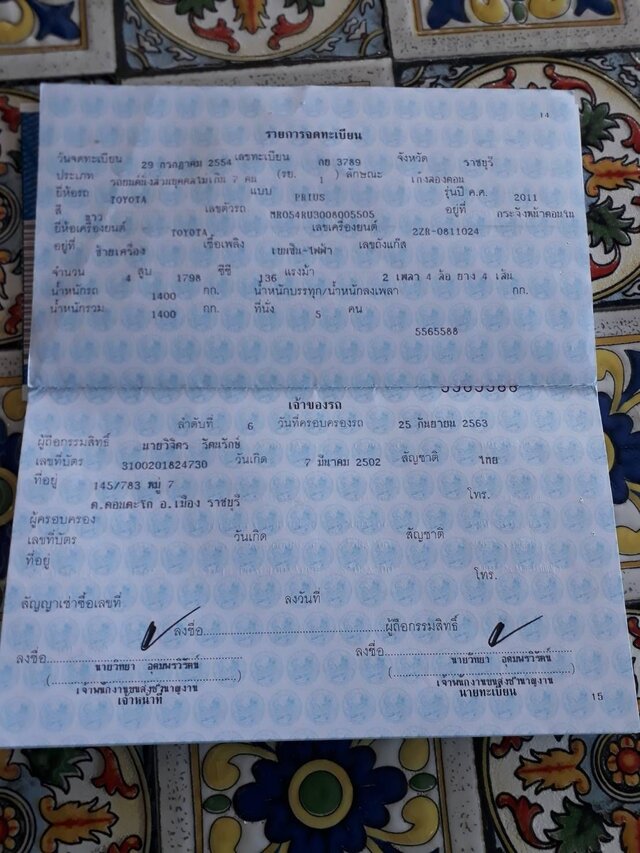 14
รายการจดทะเบียน
วันจดทะเบียน 29 กรกฎาคม 2554 เลขทะเบียน กย 3789 จังหวัด ราชบุรี
ประเภท รถยนต์นั่งส่วนบุคคลไม่เกิน 7 คน (รย. 1 ) ลักษณะ เก๋งสองตอน
ยี่ห้อรถ TOYOTA แบบ PRIUS รุ่นปี ค.ศ. 2011
สี ขาว เลขตัวรถ MR054RU3008005505 อยู่ที่ กระจังหน้าตอนริม
ยี่ห้อเครื่องยนต์ TOYOTA เลขเครื่องยนต์ 2ZR-0811024
อยู่ที่ ซ้ายเครื่อง เชื้อเพลิง เบนซิน-ไฟฟ้า เลขถังแก๊ส
จำนวน 4 สูบ 1798 ซีซี 136 แรงม้า 2 เพลา 4 ล้อ ยาง 4 เส้น
น้ำหนักรถ 1400 กก. น้ำหนักบรรทุก/น้ำหนักลงเพลา กก.
น้ำหนักรวม 1400 กก. ที่นั่ง 5 คน
5565588
5565588
เจ้าของรถ
ลำดับที่ 6 วันที่ครอบครองรถ 25 กันยายน 2563
ผู้ถือกรรมสิทธิ์ นายวิจิตร รัตนรักษ์
เลขที่บัตร 3100201824730 วันเกิด 7 มีนาคม 2502 สัญชาติ ไทย
ที่อยู่ 145/783 หมู่ 7
ต.ดอนตะโก อ.เมือง ราชบุรี โทร.
ผู้ครอบครอง
เลขที่บัตร วันเกิด สัญชาติ
ที่อยู่
โทร.
สัญญาเช่าซื้อเลขที่ ลงวันที่
ลงชื่อ ผู้ถือกรรมสิทธิ์
ลงชื่อ ลงชื่อ
นายวิทยา อุดมพรวิรัตน์ นายวิทยา อุดมพรวิรัตน์
เจ้าพนักงานขนส่งชำนาญงาน เจ้าพนักงานขนส่งชำนาญงาน
เจ้าหน้าที่ นายทะเบียน
15